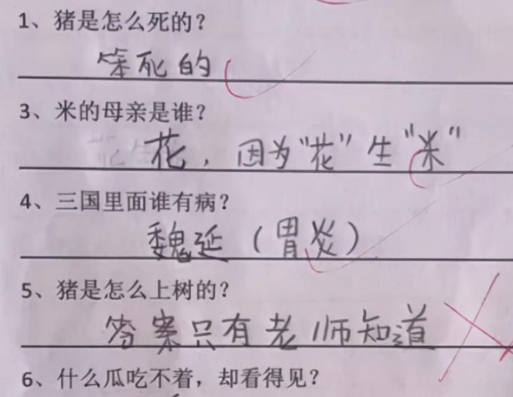 1、猪是怎么死的？
笨死的
3、米的母亲是谁？
花，因为“花”生“米”
4、三国里面谁有病？
魏延（胃炎）
5、猪是怎么上树的？
答案只有老师知道
6、什么瓜吃不着，却看得见？